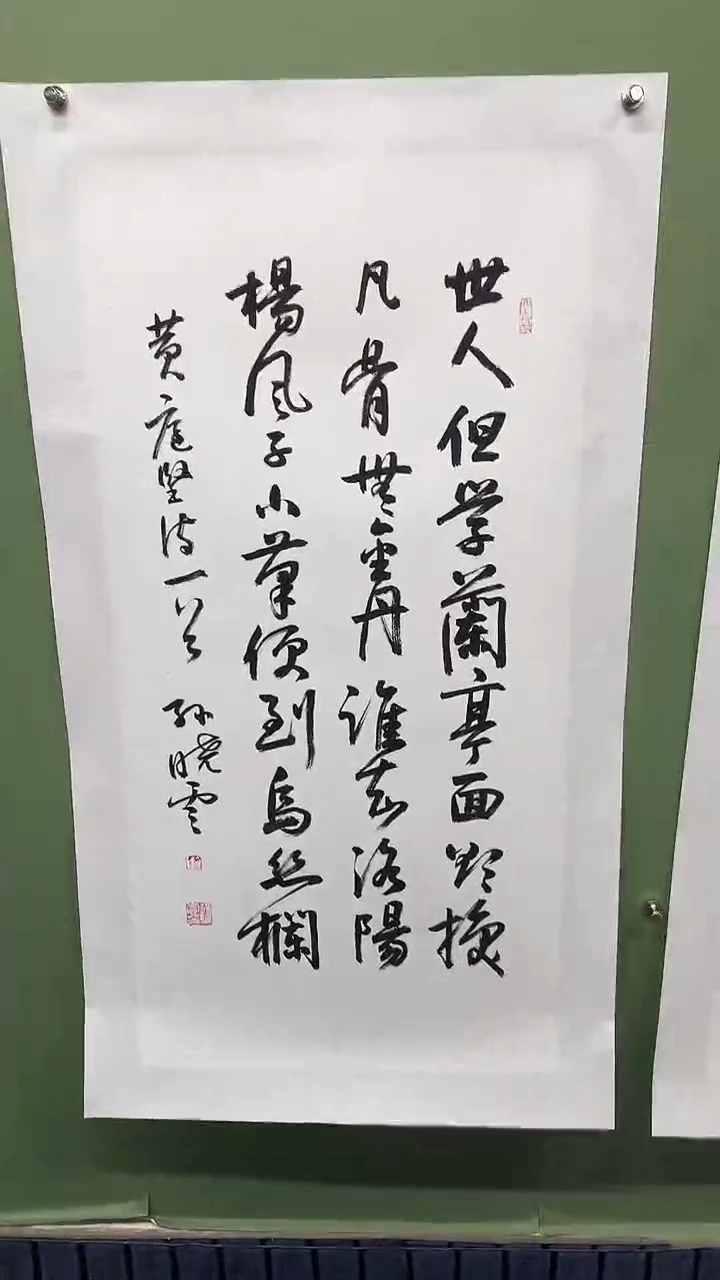 世人但学蘭亭面欲換
凡骨無金丹誰知洛陽
楊風子下筆便到烏絲欄
黄庭堅诗一首 孙晓雲